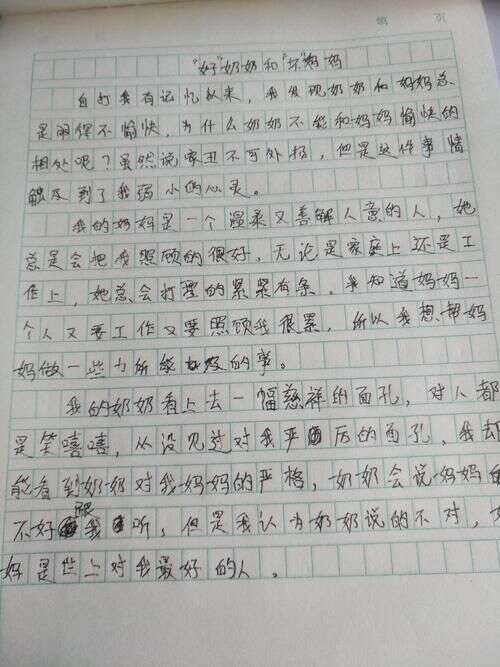 第 页
"好"奶奶和"坏"妈妈
自打我有记忆以来,我发现奶奶和妈妈总
是闹得不愉快,为什么奶奶不能和妈妈愉快的
相处呢?虽然说家丑不可外扬,但是这件事情
触及到了我弱小的心灵。
我的妈妈是一个温柔又善解人意的人,她
总是会把我照顾的很好,无论是家庭上还是工
作上,她总会打理的紧紧有条,我知道妈妈一
个人又要工作又要照顾我很累,所以我想帮妈
妈做一些力所能及的事。
我的奶奶看上去一幅慈祥的面孔,对人都
是笑嘻嘻,从没见过对我严厉的面孔,我却
能看到奶奶对我妈妈的严格,奶奶会说妈妈的
不好跟我听,但是我认为奶奶说的不对,
妈是世上对我最好的人。